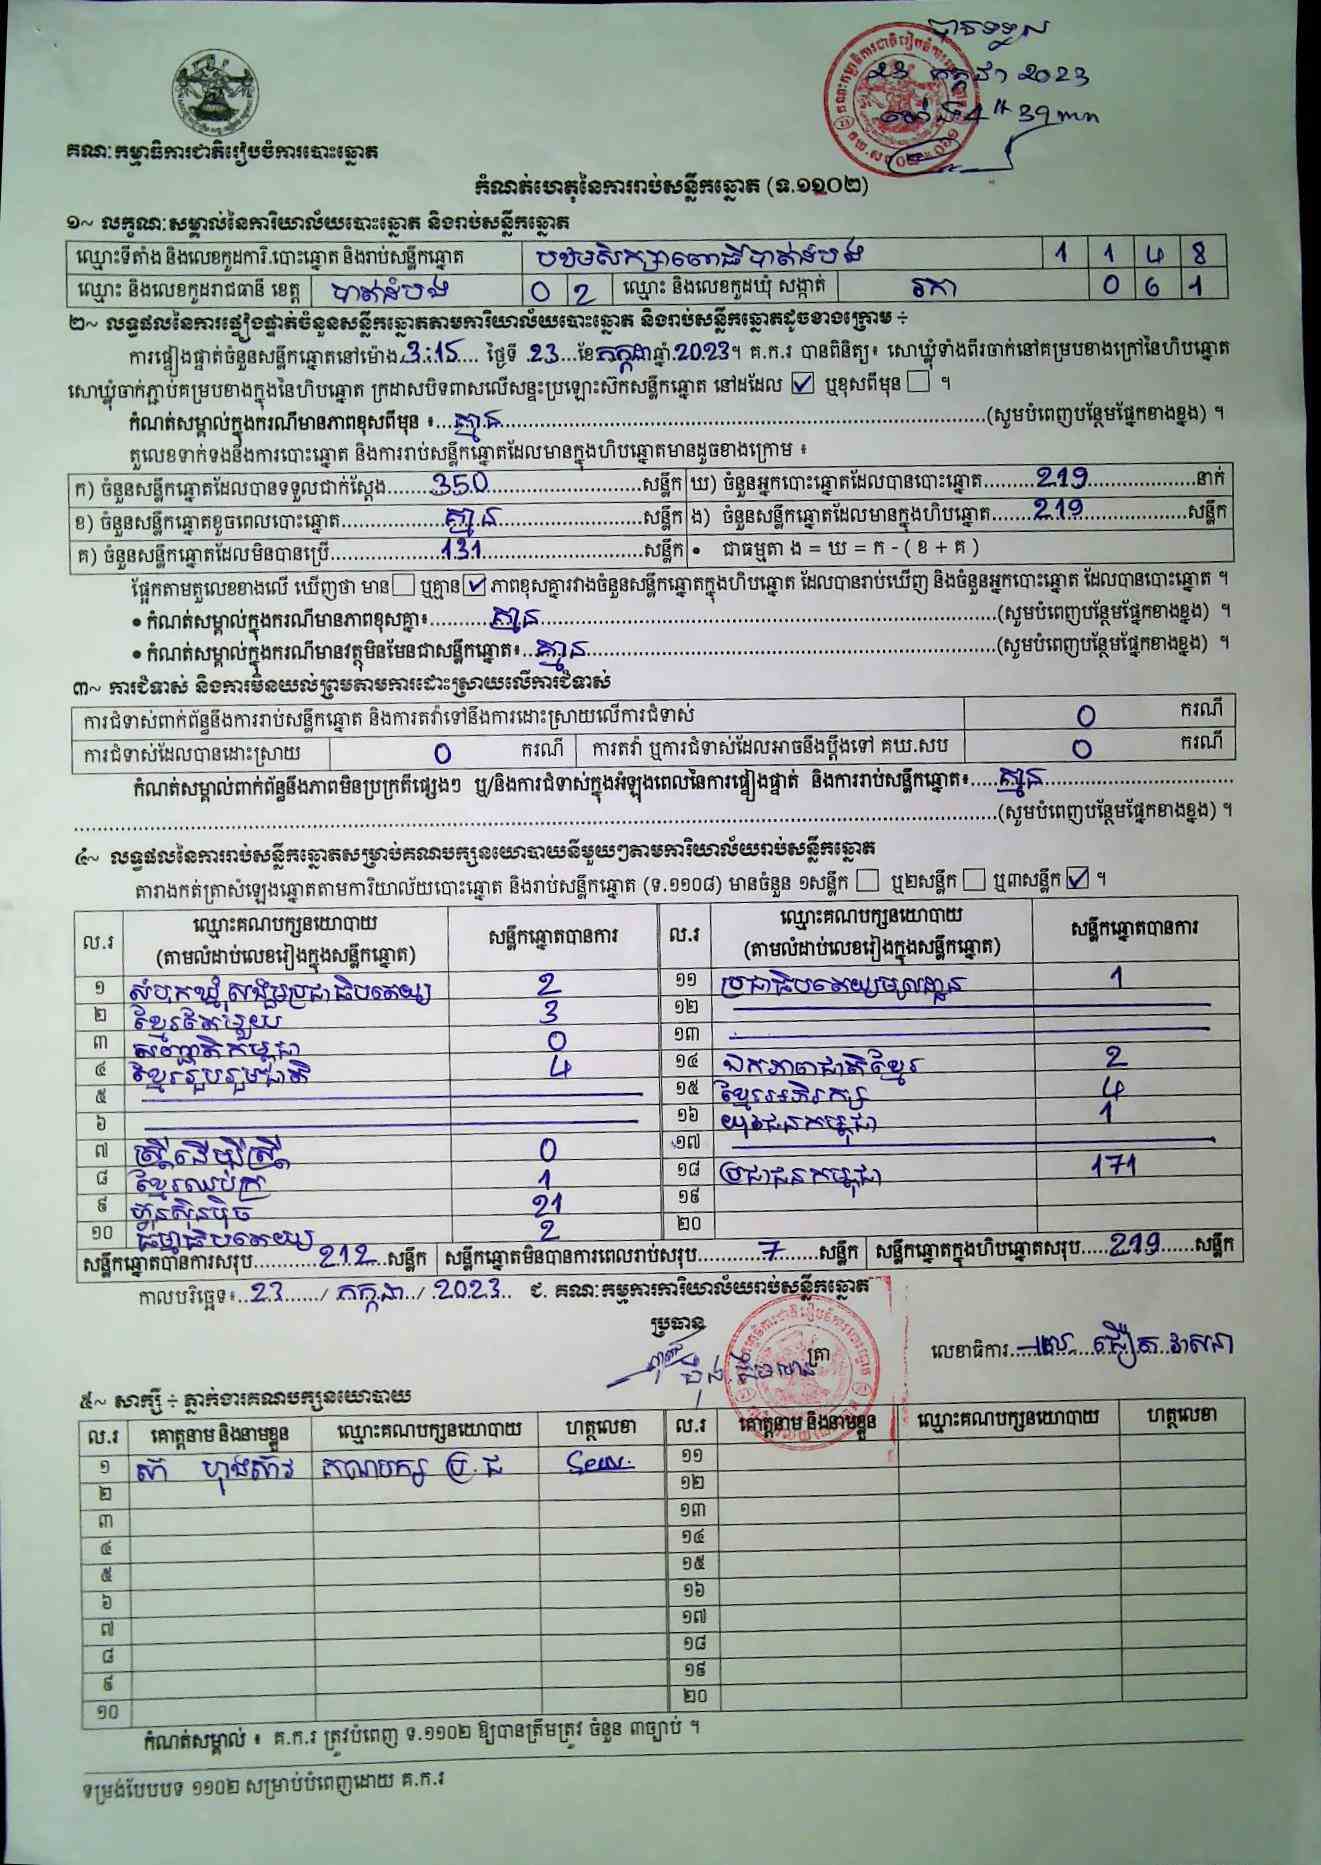 បានទទួល
23 កក្កដា 2023
ម៉ោង 4h 39mn
គណៈកម្មាធិការជាតិរៀបចំការបោះឆ្នោត
កំណត់ហេតុនៃការរាប់សន្លឹកឆ្នោត (ទ.១១០២)
១~ លក្ខណៈសម្គាល់នៃការិយាល័យបោះឆ្នោត និងរាប់សន្លឹកឆ្នោត
ឈ្មោះទីតាំង និងលេខកូដការិ.បោះឆ្នោត និងរាប់សន្លឹកឆ្នោត បឋមសិក្សាពោធិ៍បាត់ដំបង 1 1 4 8
ឈ្មោះ និងលេខកូដរាជធានី ខេត្ត បាត់ដំបង 0 2 ឈ្មោះ និងលេខកូដឃុំ សង្កាត់ រកា 0 6 1
២~ លទ្ធផលនៃការផ្ទៀងផ្ទាត់ចំនួនសន្លឹកឆ្នោតតាមការិយាល័យបោះឆ្នោត និងរាប់សន្លឹកឆ្នោតដូចខាងក្រោម ÷
ការផ្ទៀងផ្ទាត់ចំនួនសន្លឹកឆ្នោតនៅម៉ោង 3:15 ថ្ងៃទី 23 ខែកក្កដា ឆ្នាំ 2023។ គ.ក.រ បានពិនិត្យ៖ សោឃ្លុំទាំងពីរចាក់នៅគម្របខាងក្រៅនៃហិបឆ្នោត
សោឃ្លុំចាក់ភ្ជាប់គម្របខាងក្នុងនៃហិបឆ្នោត ក្រដាសបិទពាសលើសន្ទះប្រឡោះស៊កសន្លឹកឆ្នោត នៅដដែល ☑ ឬខុសពីមុន ☐ ។
កំណត់សម្គាល់ក្នុងករណីមានភាពខុសពីមុន ៖ គ្មាន (សូមបំពេញបន្ថែមផ្នែកខាងខ្នង) ។
តួលេខទាក់ទងនឹងការបោះឆ្នោត និងការរាប់សន្លឹកឆ្នោតដែលមានក្នុងហិបឆ្នោតមានដូចខាងក្រោម ៖
ក) ចំនួនសន្លឹកឆ្នោតដែលបានទទួលជាក់ស្តែង 350 សន្លឹក ឃ) ចំនួនអ្នកបោះឆ្នោតដែលបានបោះឆ្នោត 219 នាក់
ខ) ចំនួនសន្លឹកឆ្នោតខូចពេលបោះឆ្នោត គ្មាន សន្លឹក ង) ចំនួនសន្លឹកឆ្នោតដែលមានក្នុងហិបឆ្នោត 219 សន្លឹក
គ) ចំនួនសន្លឹកឆ្នោតដែលមិនបានប្រើ 131 សន្លឹក • ជាធម្មតា ង = ឃ = ក - ( ខ + គ )
ផ្អែកតាមតួលេខខាងលើ ឃើញថា មាន ☐ ឬគ្មាន ☑ ភាពខុសគ្នារវាងចំនួនសន្លឹកឆ្នោតក្នុងហិបឆ្នោត ដែលបានរាប់ឃើញ និងចំនួនអ្នកបោះឆ្នោត ដែលបានបោះឆ្នោត ។
• កំណត់សម្គាល់ក្នុងករណីមានភាពខុសគ្នា៖ គ្មាន (សូមបំពេញបន្ថែមផ្នែកខាងខ្នង) ។
• កំណត់សម្គាល់ក្នុងករណីមានវត្ថុមិនមែនជាសន្លឹកឆ្នោត៖ គ្មាន (សូមបំពេញបន្ថែមផ្នែកខាងខ្នង) ។
៣~ ការជំទាស់ និងការមិនយល់ព្រមតាមការដោះស្រាយលើការជំទាស់
ការជំទាស់ពាក់ព័ន្ធនឹងការរាប់សន្លឹកឆ្នោត និងការតវ៉ាទៅនឹងការដោះស្រាយលើការជំទាស់ 0 ករណី
ការជំទាស់ដែលបានដោះស្រាយ 0 ករណី ការតវ៉ា ឬការជំទាស់ដែលអាចនឹងប្តឹងទៅ គឃ.សប 0 ករណី
កំណត់សម្គាល់ពាក់ព័ន្ធនឹងភាពមិនប្រក្រតីផ្សេងៗ ឬ/និងការជំទាស់ក្នុងអំឡុងពេលនៃការផ្ទៀងផ្ទាត់ និងការរាប់សន្លឹកឆ្នោត៖ គ្មាន
(សូមបំពេញបន្ថែមផ្នែកខាងខ្នង) ។
៤~ លទ្ធផលនៃការរាប់សន្លឹកឆ្នោតសម្រាប់គណបក្សនយោបាយនីមួយៗតាមការិយាល័យរាប់សន្លឹកឆ្នោត
តារាងកត់ត្រាសំឡេងឆ្នោតតាមការិយាល័យបោះឆ្នោត និងរាប់សន្លឹកឆ្នោត (ទ.១១០៨) មានចំនួន ១សន្លឹក ☐ ឬ២សន្លឹក ☐ ឬ៣សន្លឹក ☑ ។
ល.រ ឈ្មោះគណបក្សនយោបាយ សន្លឹកឆ្នោតបានការ ល.រ ឈ្មោះគណបក្សនយោបាយ សន្លឹកឆ្នោតបានការ
(តាមលំដាប់លេខរៀងក្នុងសន្លឹកឆ្នោត) (តាមលំដាប់លេខរៀងក្នុងសន្លឹកឆ្នោត)
១ សំបុកឃ្មុំសង្គមប្រជាធិបតេយ្យ 2 ១១ ប្រជាធិបតេយ្យមូលដ្ឋាន 1
២ ខ្មែរតែមួយ 3 ១២
៣ សញ្ជាតិកម្ពុជា 0 ១៣
៤ ខ្មែររួបរួមជាតិ 4 ១៤ ឯកភាពជាតិខ្មែរ 2
៥ ១៥ ខ្មែរអភិរក្ស 4
៦ ១៦ យុវជនកម្ពុជា 1
៧ ស្ត្រីដើម្បីស្ត្រី 0 ១៧
៨ ខ្មែរឈប់ក្រ 1 ១៨ ប្រជាជនកម្ពុជា 171
៩ ហ៊្វុនស៊ិនប៉ិច 21 ១៩
១០ ធម្មាធិបតេយ្យ 2 ២០
សន្លឹកឆ្នោតបានការសរុប 212 សន្លឹក សន្លឹកឆ្នោតមិនបានការពេលរាប់សរុប 7 សន្លឹក សន្លឹកឆ្នោតក្នុងហិបឆ្នោតសរុប 219 សន្លឹក
កាលបរិច្ឆេទ៖ 23 / កក្កដា / 2023 ជ. គណៈកម្មការការិយាល័យរាប់សន្លឹកឆ្នោត
ប្រធាន
ត្រា លេខាធិការ
៥~ សាក្សី ÷ ភ្នាក់ងារគណបក្សនយោបាយ
ល.រ គោត្តនាម និងនាមខ្លួន ឈ្មោះគណបក្សនយោបាយ ហត្ថលេខា ល.រ គោត្តនាម និងនាមខ្លួន ឈ្មោះគណបក្សនយោបាយ ហត្ថលេខា
១ គណបក្ស ប្រ.ជ ១១
២ ១២
៣ ១៣
៤ ១៤
៥ ១៥
៦ ១៦
៧ ១៧
៨ ១៨
៩ ១៩
១០ ២០
កំណត់សម្គាល់ ៖ គ.ក.រ ត្រូវបំពេញ ទ.១១០២ ឱ្យបានត្រឹមត្រូវ ចំនួន ៣ច្បាប់ ។
ទម្រង់បែបបទ ១១០២ សម្រាប់បំពេញដោយ គ.ក.រ